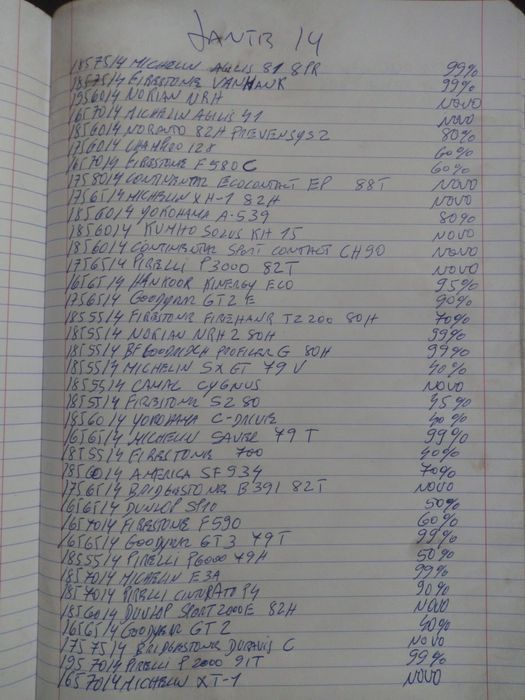 JANTE 14
1857514 MICHELIN AGILIS 81 8PR 99%
1857514 FIRESTONE VANHAWK 99%
1956014 NOKIAN NRH NOVO
1657014 MICHELIN AGILIS 41 NOVO
1856014 NORAUTO 82H PREVENSYS2 80%
1756014 CHAMPIRO 128 60%
1657014 FIRESTONE F580C 60%
1758014 CONTINENTAL ECOCONTACT EP 88T NOVO
1756514 MICHELIN XH-1 82H NOVO
1856014 YOKOHAMA A-539 80%
1856014 KUMHO SOLUS KH 15 NOVO
1856014 CONTINENTAL SPORT CONTACT CH90 NOVO
1756514 PIRELLI P3000 82T NOVO
1656514 HANKOOK KINERGY ECO 95%
1756514 GOODYEAR GT2 E 90%
1855514 FIRESTONE FIREHAWK TZ200 80H 70%
1855514 NOKIAN NRH2 80H 99%
1855514 BFGOODRICH PROFILER G 80H 99%
1855514 MICHELIN SX GT 79V 40%
1855514 CAMAC CYGNUS NOVO
1855514 FIRESTONE S280 45%
1856014 YOKOHAMA C-DRIVE 40%
1656514 MICHELIN SAVER 79T 99%
1855514 FIRESTONE 700 40%
1856014 AMERICA SF934 70%
1756514 BRIDGESTONE B391 82T NOVO
1656514 DUNLOP SP10 50%
1657014 FIRESTONE F590 60%
1656514 GOODYEAR GT3 79T 99%
1855514 PIRELLI P6000 79H 50%
1857014 MICHELIN E3A 99%
1857014 PIRELLI CINTURATO P4 90%
1856014 DUNLOP SPORT2000E 82H NOVO
1656514 GOODYEAR GT2 40%
1757514 BRIDGESTONE DURAVIS C NOVO
1957014 PIRELLI P2000 91T 99%
1657014 MICHELIN XT-1 NOVO